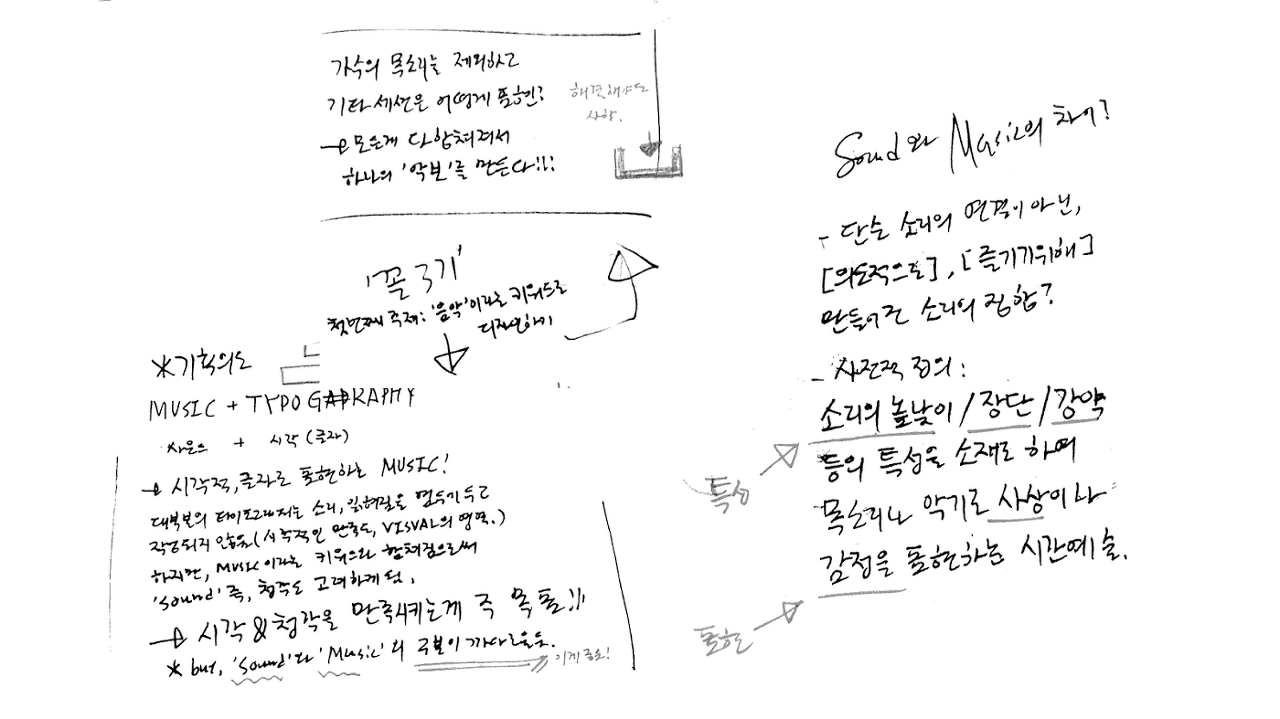 가수의 목소리는 제외하고
기타 세션은 어떻게 표현?
→ 모든게 다 합쳐져서
하나의 '악보'를 만든다!!!
해결해야 될
사항.
'꼴 3기'
첫번째 주제: '음악'이라는 키워드로
디자인하기
*기획의도
MUSIC + TYPOGRAPHY
사운드 + 시각 (글자)
→ 시각적, 글자로 표현하는 MUSIC!
대부분의 타이포그래피는 소리, 읽혀짐을 염두에 두고
작업되지 않음. (시각적인 만족도, VISUAL의 영역.)
하지만, MUSIC이라는 키워드와 합쳐짐으로써
'Sound' 즉, 청각도 고려하게 됨.
→ 시각 & 청각을 만족시키는게 즉 목표!!!
* but, 'Sound'와 'Music'의 구분이 까다로움.
이게 중요!
Sound와 Music의 차이?
- 단순 소리의 연결이 아닌,
[의도적으로], [즐기기위해]
만들어진 소리의 집합?
- 사전적 정의:
소리의 높낮이 / 장단 / 강약
등의 특성을 소재로 하여
목소리나 악기로 사상이나
감정을 표현하는 시간예술.
특성
표현